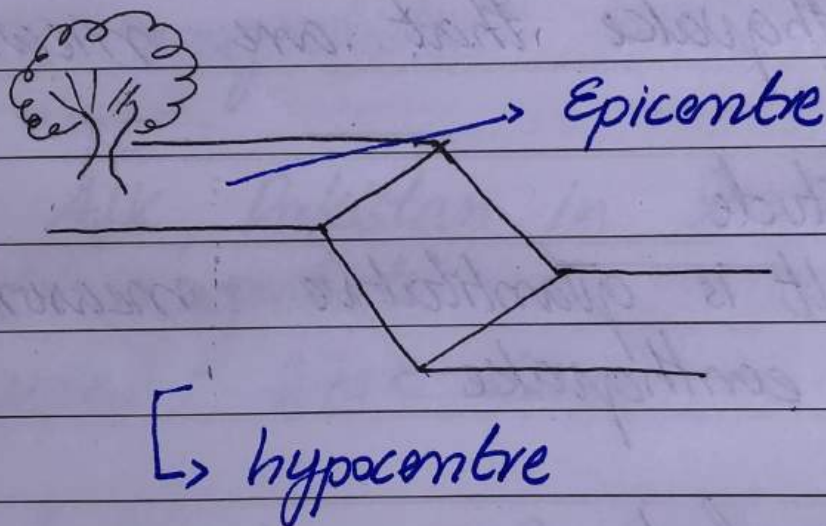 Epicentre
hypocentre